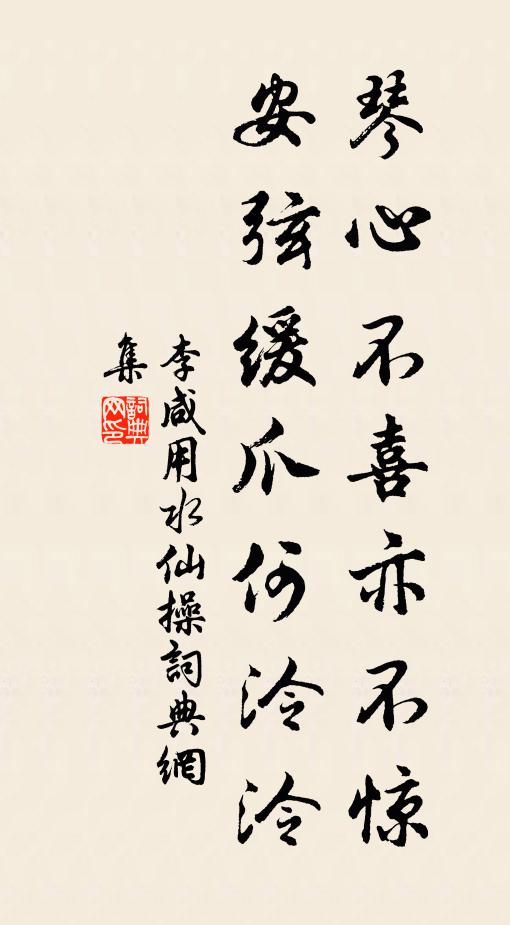 琴心不喜亦不惊
安弦缓爪何泠泠
李咸用水仙操詞典網
集
詞典网印